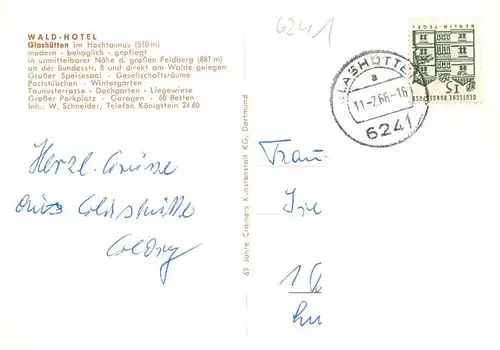 WALD-HOTEL
Glashütten im Hochtaunus (510 m)
modern - behaglich - gepflegt
in unmittelbarer Nähe d. großen Feldberg (881 m)
an der Bundesstr. 8 und direkt am Walde gelegen
Großer Speisesaal - Gesellschaftsräume
Poststübchen - Wintergarten
Taunusterrasse - Dachgarten - Liegewiese
Großer Parkplatz - Garagen - 60 Betten
Inh.: W. Schneider, Telefon Königstein 24 60
Herzl. Grüsse
aus Glashütte
60 Jahre Cramers Kunstanstalt KG, Dortmund
6241
LASHÜTTE
a
11-2.66-16
6241
BERLIN-TEGEL
15
DEUTSCHE BUNDESPOST
Frau
1